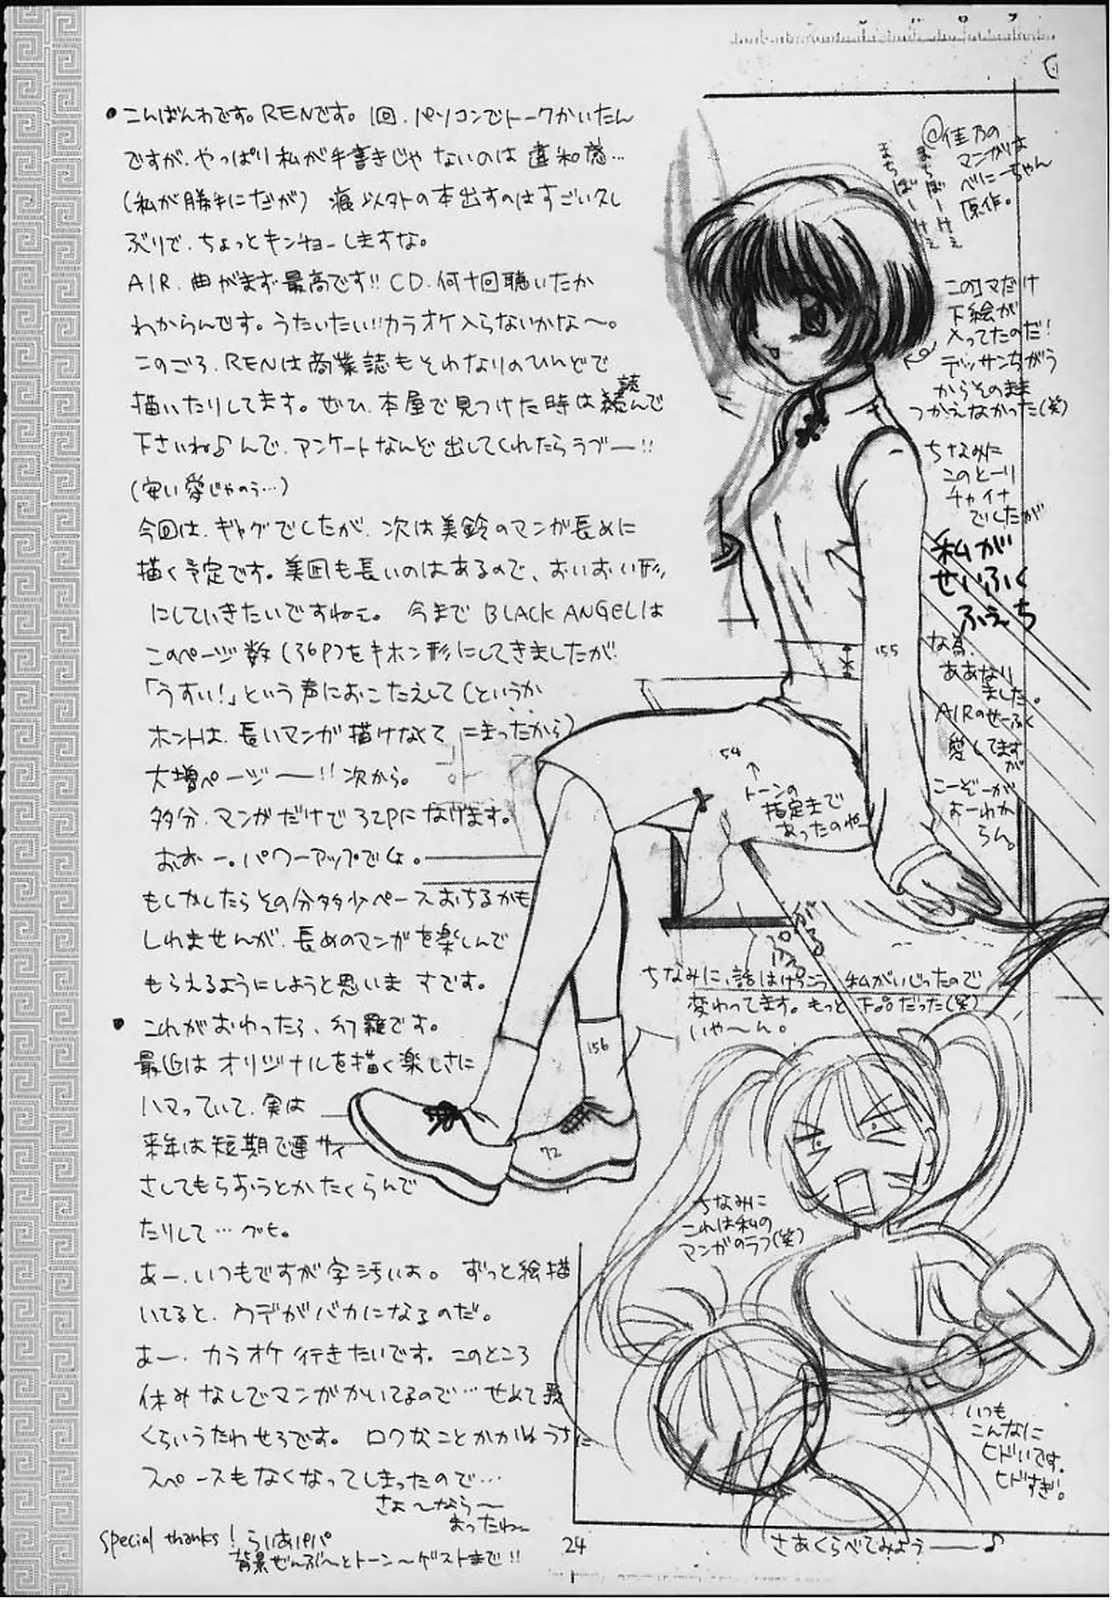 ●こんばんわです。RENです。1回、パソコンでトークかいたん
ですが、やっぱり私が手書きじゃないのは違和感…
(私が勝手にだが) 痕以外の本出すのはすごい久し
ぶりで、ちょっとキンチョーしますな。
AIR、曲がまず最高です!! CD、何十回聴いたか
わからんです。うたいたい!!カラオケ入らないかな〜。
このごろ、RENは商業誌もそれなりのひんどで
描いたりしてます。ぜひ、本屋で見つけた時は読んで
下さいね♪んで、アンケートなんど出してくれたらラブー!!
(安い愛じゃのぅ…)
今回は、ギャグでしたが、次は美鈴のマンガ長めに
描く予定です。美凪も長いのはあるので、おいおい形
にしていきたいですねぇ。 今まで BLACK ANGELは
このページ数(36P)をキホン形にしてきましたが
「うすい!」という声におこたえして(というか
ホントは、長いマンガ描けなくてこまったから)
大増ページ――!!次から。
多分、マンガだけで32Pになります。
おおー。パワーアップでょ。
もしかしたらその分多少ペースおちるかも
しれませんが、長めのマンガを楽しんで
もらえるようにしようと思いますです。
●これがおわったら、幻羅です。
最近はオリジナルを描く楽しさに
ハマっていて、実は
来年は短期で連サイ
させてもらおうとかたくらんで
たりして…グヒ。
あー、いつもですが字汚いよ。 ずっと絵描
いてると、ウデがバカになるのだ。
あー、カラオケ行きたいです。このところ
休みなしでマンガかいてるので…せめて歌
くらいうたわせろです。 ロクなことかかぬうちに
スペースもなくなってしまったので…
さよ〜なら〜
まったね〜
special thanks! らいあパパ
背景ぜんぶ〜とトーン〜ゲストまで!!
24
@佳乃の
マンガは
べにーちゃん
原作。
まちぼーけぇ
まちぼーけぇ
このコマだけ
下絵が
入ってたのだ!
デッサンちがう
からそのまま
つかえなかった(笑)
ちなみに
このとーり
チャイナ
でしたが
私が
せいふく
ふぇち
な為、
ああなり
ました。
AIRのせーふく
愛してますが
こーぞーが
よーわか
らん。
155
54
トーンの
指定まで
あったのや
156
72
ちなみに、話はけっこう 私がいじったので
変わってます。もっと下品だった(笑)
いや〜ん。
ちなみに
これは私の
マンガのラフ(笑)
いつも
こんなに
ヒドいです。
ヒドすぎ。
さあくらべてみよう――♪